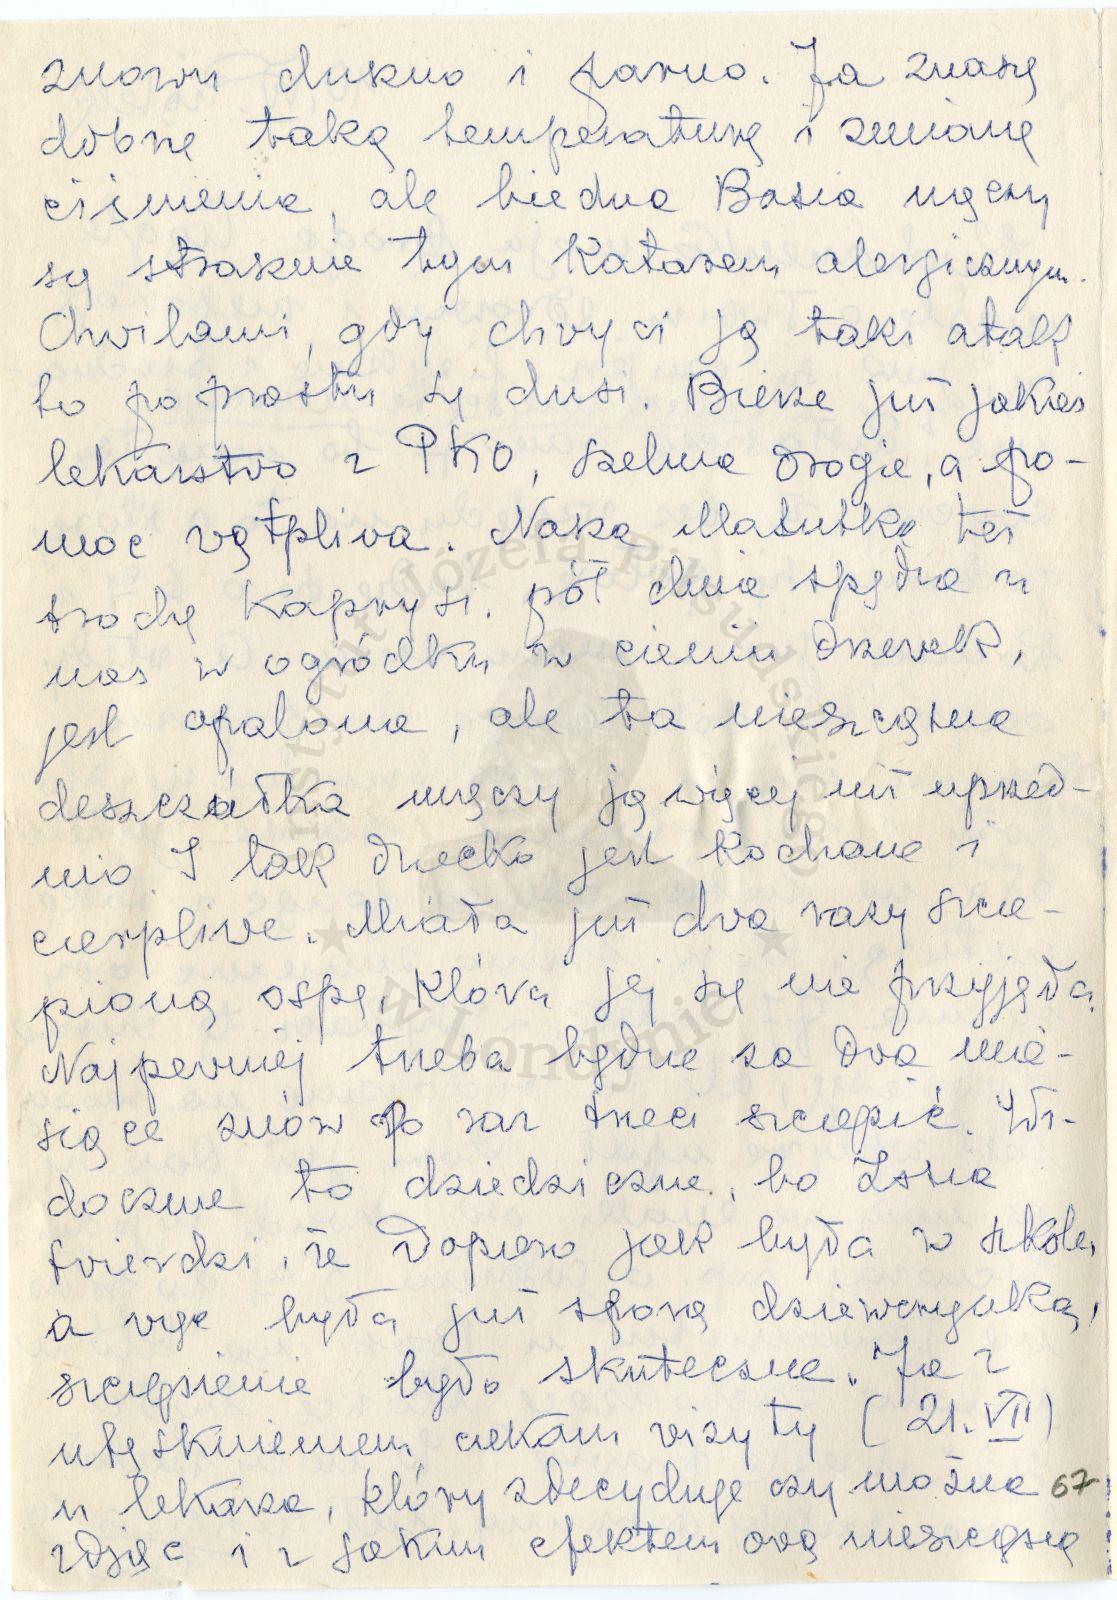 znowu duszno i parno. Ja znoszę
dobrze taką temperaturę i zmianę
ciśnienia, ale biedna Basia męczy
się strasznie tym katarem alergicznym.
Chwilami, gdy chwyci ją taki atak
to po prostu się dusi. Bierze już jakieś
lekarstwo z PKO, szelma drogie, a po-
moc wątpliwa. Nasza Malutka też
trochę kaprysi. pół dnia spędza u
nas w ogródku w cieniu drzewek,
jest opalona, ale ta nieszczęsna
deszczułka męczy ją więcej niż uprzed-
nio. I tak dziecko jest kochane i
cierpliwe. Miała już dwa razy szcze-
pioną ospę, która jej się nie przyjęła.
Najpewniej trzeba będzie za dwa mie-
siące znów po raz trzeci szczepić. Wi-
docznie to dziedziczne, bo Zosia
twierdzi, że dopiero jak była w szkole,
a więc była już sporą dziewczynką,
szczepienie było skuteczne. Ja z
utęsknieniem czekam wizyty (21.VII)
u lekarza, który zdecyduje czy można
zdjąć i z jakim efektem ową nieszczęsną
67
Instytut Józefa Piłsudskiego
w Londynie